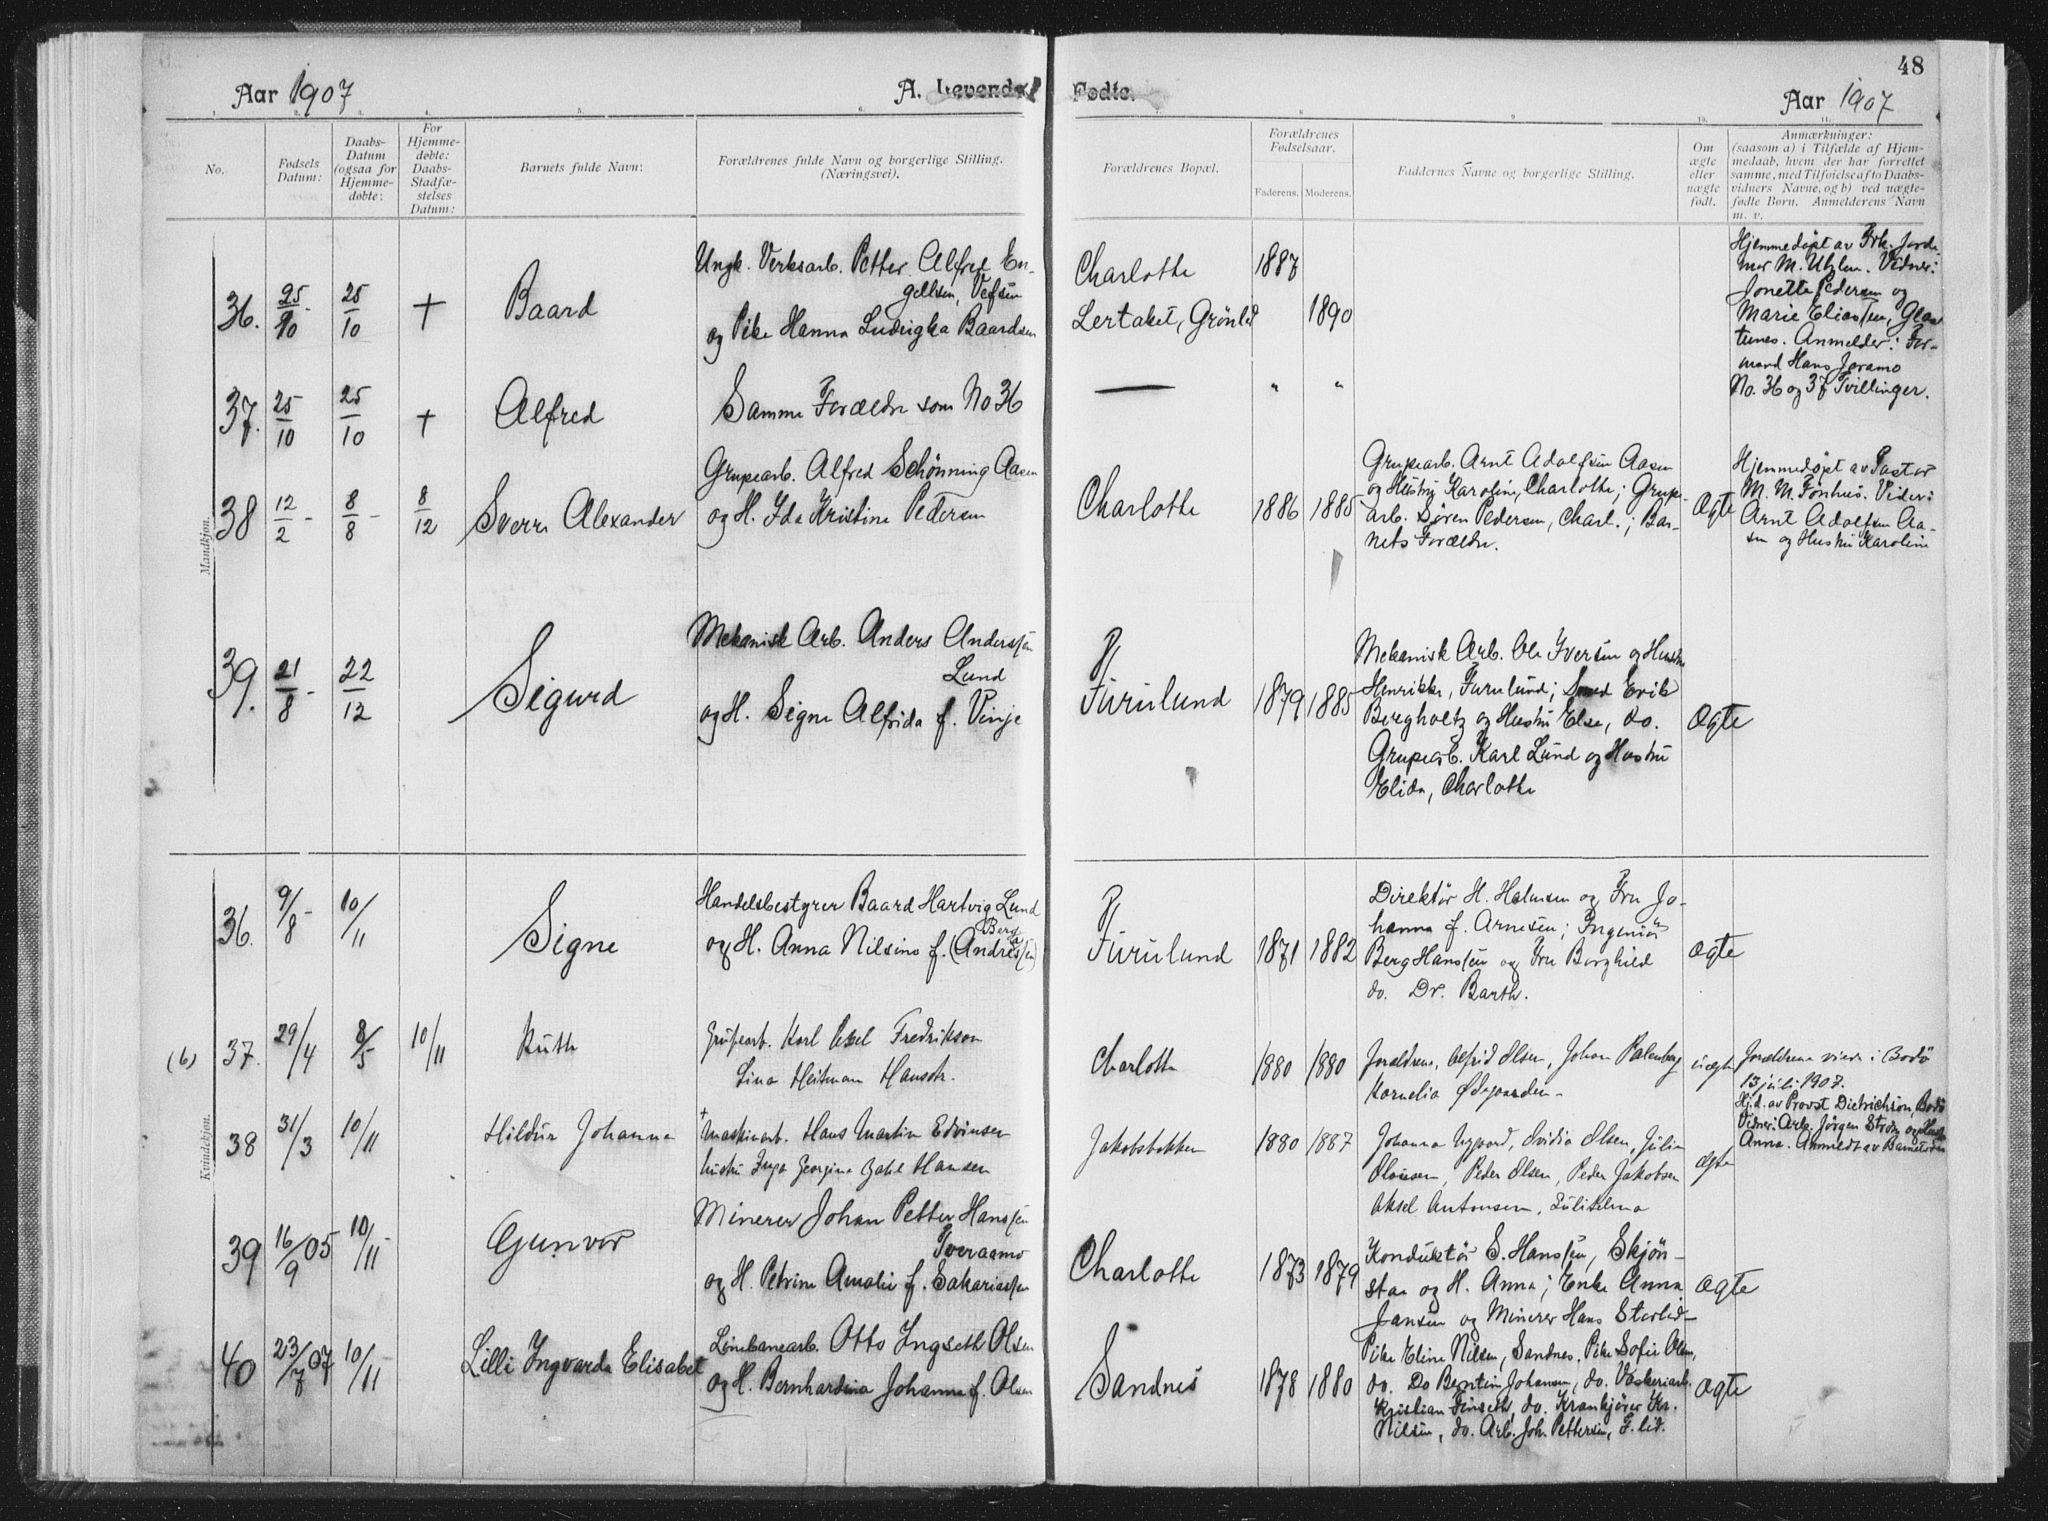 48
Aar 1907
A. Levende
Fødte.
Aar 1907
No.
Fødsels Datum:
Daabs-Datum (ogsaa for Hjemme-døbte:
For Hjemme-døbte: Daabs-Stadfæ-stelses Datum:
Barnets fulde Navn:
Forældrenes fulde Navn og borgerlige Stilling. (Næringsvei).
Forældrenes Bopæl.
Forældrenes Fødselsaar.
Faderens.
Moderens.
Faddernes Navne og borgerlige Stilling.
Om ægte eller uægte født.
Anmærkninger:
(saasom a) i Tilfælde af Hjem-
medaab, hvem der har forrettet
samme, med Tilføielse af to Daabs-
vidners Navne, og b) ved uægte-
fødte Børn. Anmelderens Navn
m. v.
Mandkjøn.
36. 25/10 25/10 + Baard
Ungk. Verksarb. Petter Alfred En-
gelsen, Vefsen
og Pike Hanna Ludvigka Baardsen
Charlotta 1887
Lertaket, Grønlid 1890
Hjemmedøpt av Frk. Jorde-
mor M. Utzlen. Vidner:
Jonette Pedersen og
Marie Eliassen,
Anmelder: For-
mand Hans Joramo
No. 36 og 37 Tvillinger.
37. 25/10 25/10 + Alfred
Samme Forældre som No 36
— " "
38 12/2 - 8/8 - 8/12 Sverre Alexander
Grupearb. Alfred Schønning Aasen
og H. Ida Kristine Pedersen
Charlotta 1886 1885
Grupearb. Arnt Adolfsen Aasen
og Hustru Karoline, Charlotta; Grupe-
arb. Søren Pedersen, Charl.; Bar-
nets Forældre.
Ægte
Hjemmedøpt av Pastor
M. M. Fonhus. Vidner:
Arnt Adolfsen Aa-
sen og Hustru Karoline
39. 21/8 - 22/12 Sigurd
Mekanisk Arb. Anders Anderssen
Lund
og H. Signe Alfrida f. Vinje
Furulund 1879 1885
Mekanisk Arb. Ole Iversen og Hustru
Henrikke, Furulund; Smed Erik
Bergholtz og Hustru Else, do.
Grupearb. Karl Lund og Hustru
Elida, Charlotta
Ægte
Kvindekjøn.
36. 9/8 - 10/11 Signe
Handelsbestyrer Baard Hartvig Lund
Berg
og H. Anna Nilsine f. (Andreassen)
Furulund 1871 1882
Direktør H. Holmsen og Fru Jo-
hanna f. Arnesen; Ingeniør
Berg Hanssen og Fru Borghild
do. Dr. Barth.
ægte
(6) 37. 29/4 8/5 10/11 Ruth
Grubearb. Karl Axel Fredrikson
Lina Heitman Hansdtr.
Charlotta 1880 1880
Forældrene, Alfrid Olsen, Johan Palenberg
Kornelia Ødegaarden -
uægte
Forældrene viede i Bodø
13 juli 1907.
38 31/3 10/11 Hildur Johanna
+
Maskinarb. Hans Martin Edvinsen
hustru Inga Georgine Hansen
Jakobsbakken 1880 1887
Johanna Nygaard, Ovidia Olsen, Julie
Olausen, Peder Olsen, Peder Jakobsen
Aksel Antonsen, Sulitelma
ægte
Hj.d. av Provst Dietrichson, Bodø
Vidner: Arb. Jørgen Strøm og Hustru
Anna. Anmeldt av Barnets
39 16/9 05 10/11 Gunvor
Minerer Johan Petter Hanssen
Tveraamo
og H. Petrine Amalie f. Sakariassen
Charlotta 1873 1879
Konduktør S. Hanssen, Skjøn-
staa og H. Anna; Enke Anna
Jansen og Minerer Hans Storlid-
Ægte
40 23/7 07 10/11 Lilli Ingvarda Elisabet
Linebanearb. Otto Ingseth Olsen
og H. Bernhardina Johanna f. Olsen
Sandnes 1878 1880
Pike Eline Nilsen, Sandnes. Pike Sofie Olsen,
do. Do Bentine Johansen, do. Vaskeriarb.
Kristian Finseth, do. Krankjører Kr.
Nilsen, do. Arb. Joh. Pettersen, F.lid.
Ægte